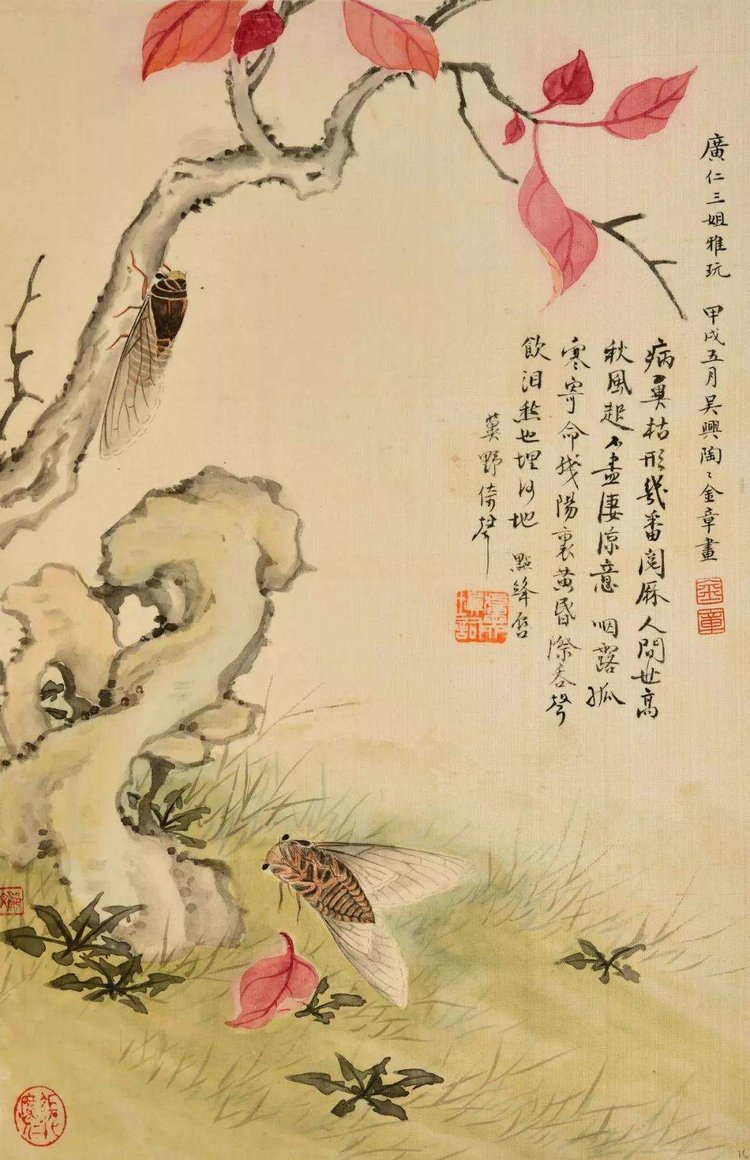 廣仁三姐雅玩 甲戌五月吳興陶〻金章畫
金章
病翼枯形幾番閱厭人間世高
秋風起不盡淒涼意咽露孤
寒寄命殘陽裏黃昏際吞聲
飲泪愁也埋何地 點絳唇
野倚聲